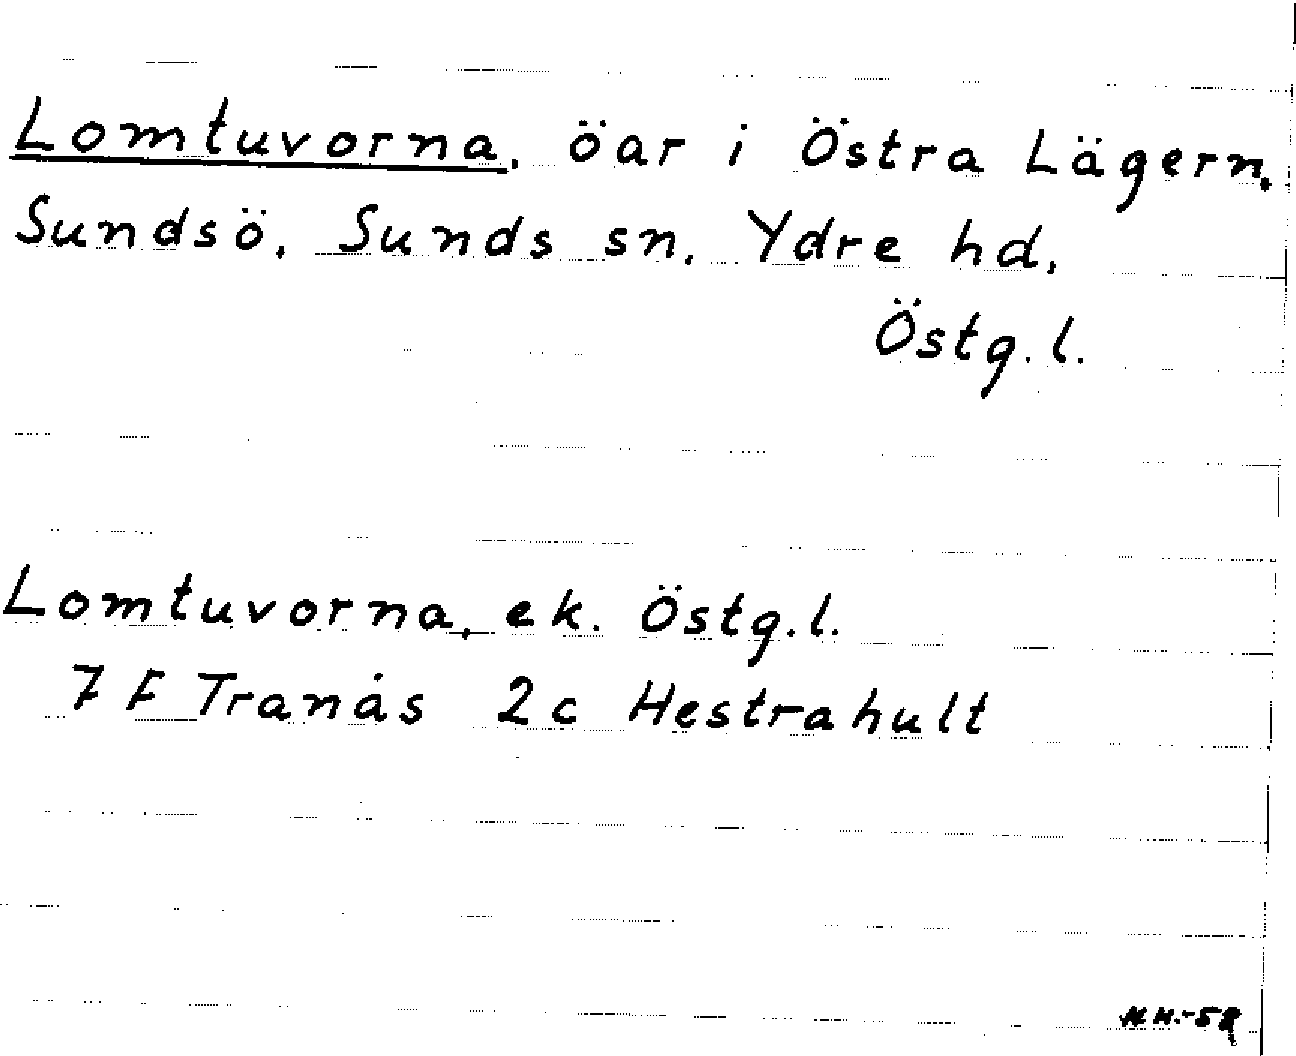 Lomtuvorna. öar i Östra Lägern.
Sundsö. Sunds sn. Ydre hd.
Östg. l.
Lomtuvorna, ek. Östg. l.
7 F Tranås 2c Hestrahult